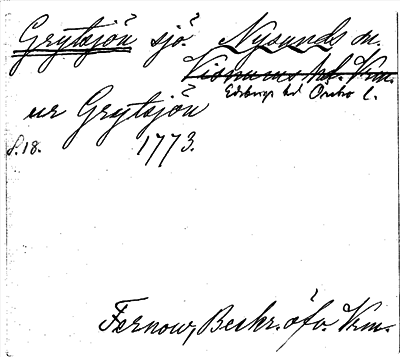 Grytsjön sjö. Nysunds sn.
Visnums hd. Vrm.
Edsbergs hd Örebro l.
ur Grytsjön
s. 18. 1773.
Fernow, Beskr. öfv. Vrm.